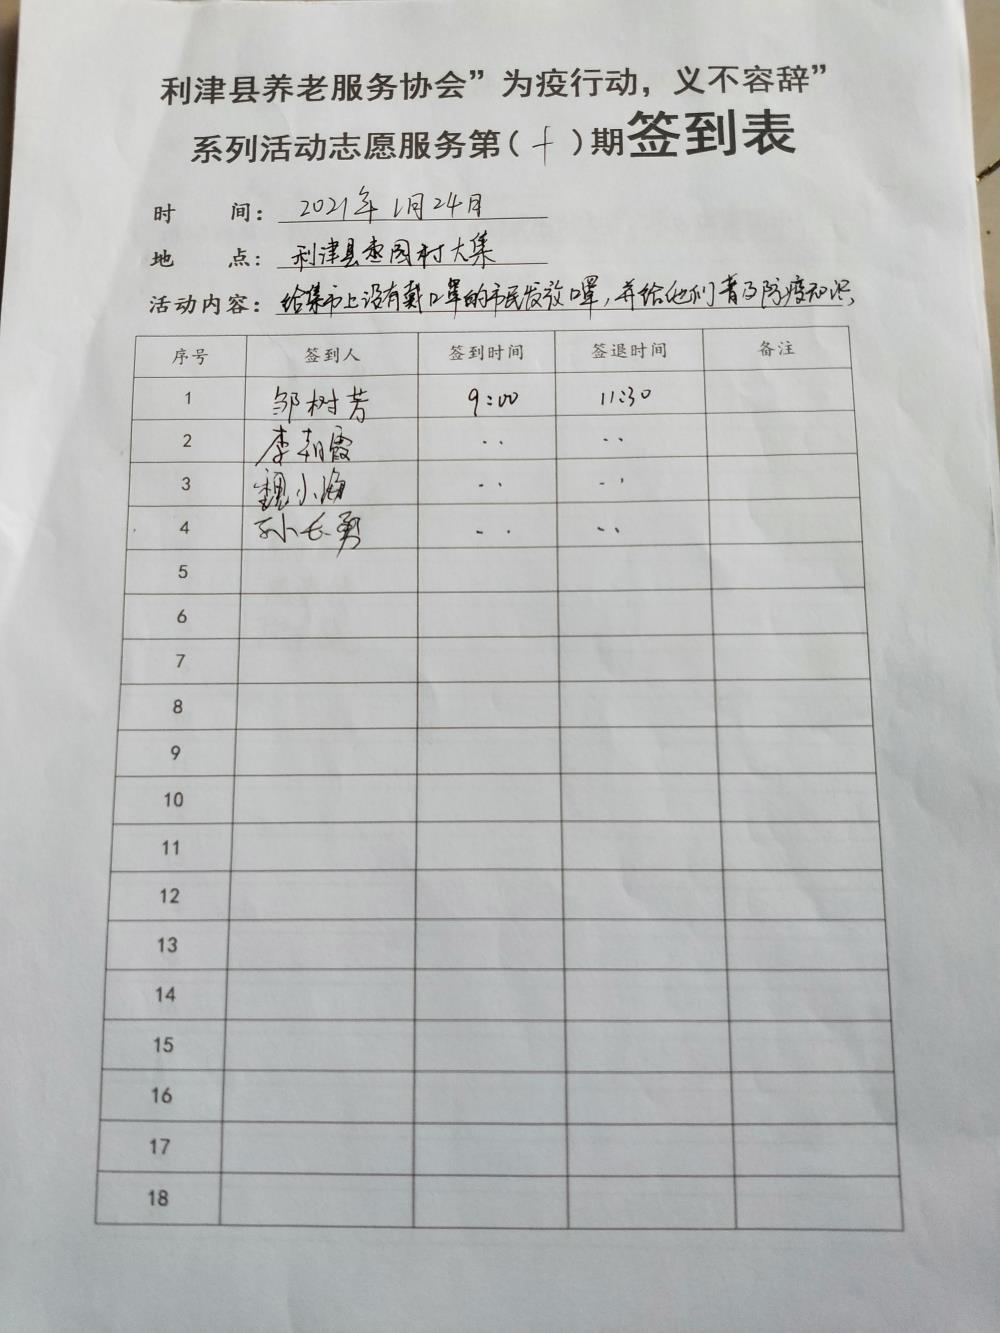 利津县养老服务协会”为疫行动，义不容辞”
系列活动志愿服务第（十）期签到表
时 间：2021年1月24日
地 点：利津县枣园村大集
活动内容：给集市上没有戴口罩的市民发放口罩，并给他们普及防疫知识
序号 签到人 签到时间 签退时间 备注
1 邹树芳 9:00 11:30
2 李朝霞 ·· ··
3 魏小海 ·· ··
4 孙长勇 ·· ··
5
6
7
8
9
10
11
12
13
14
15
16
17
18